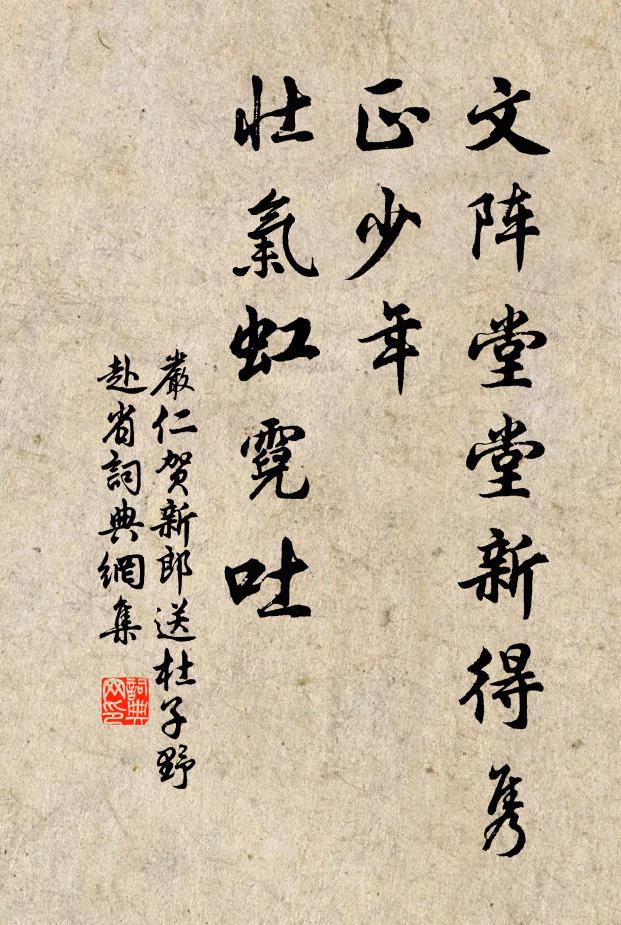 文阵堂堂新得隽
正少年
壮氣虹霓吐
嚴仁贺新郎送杜子野
赴省詞典網集
詞典网印